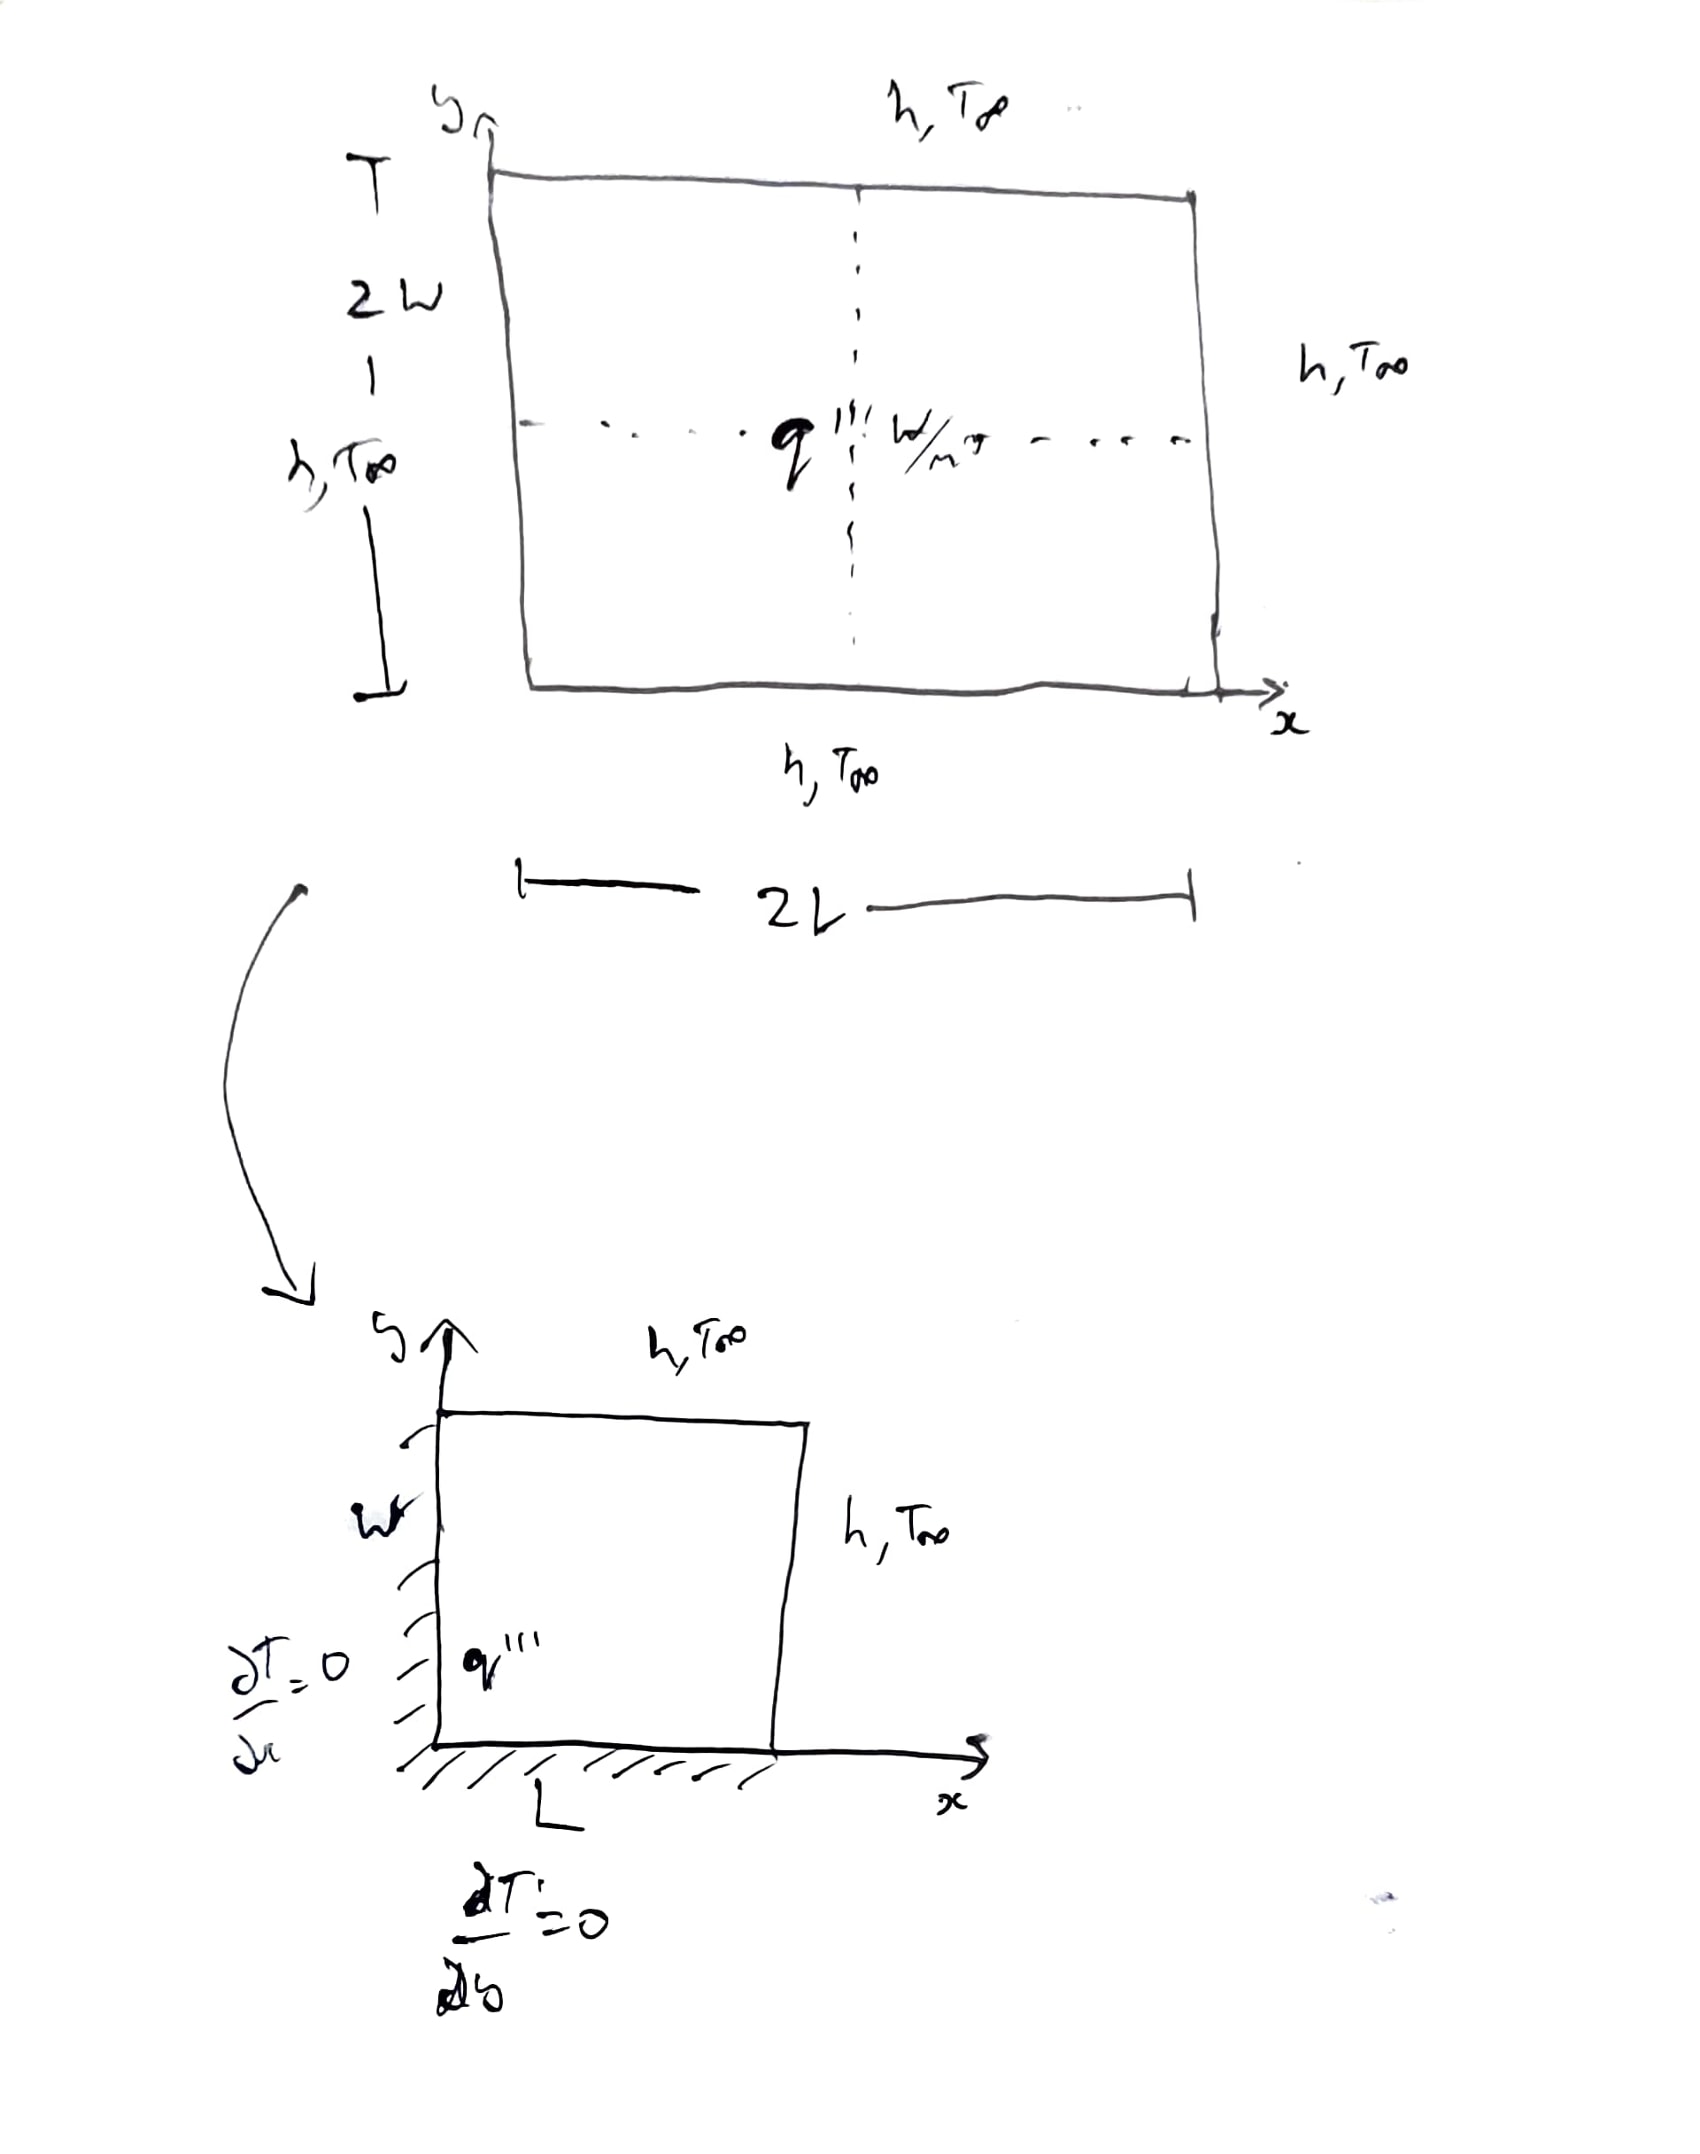 y
h, T∞
2W
h, T∞
h, T∞
q''' W/m³
x
h, T∞
2L
y
h, T∞
W
h, T∞
∂T/∂x = 0
q'''
x
L
∂T/∂y = 0